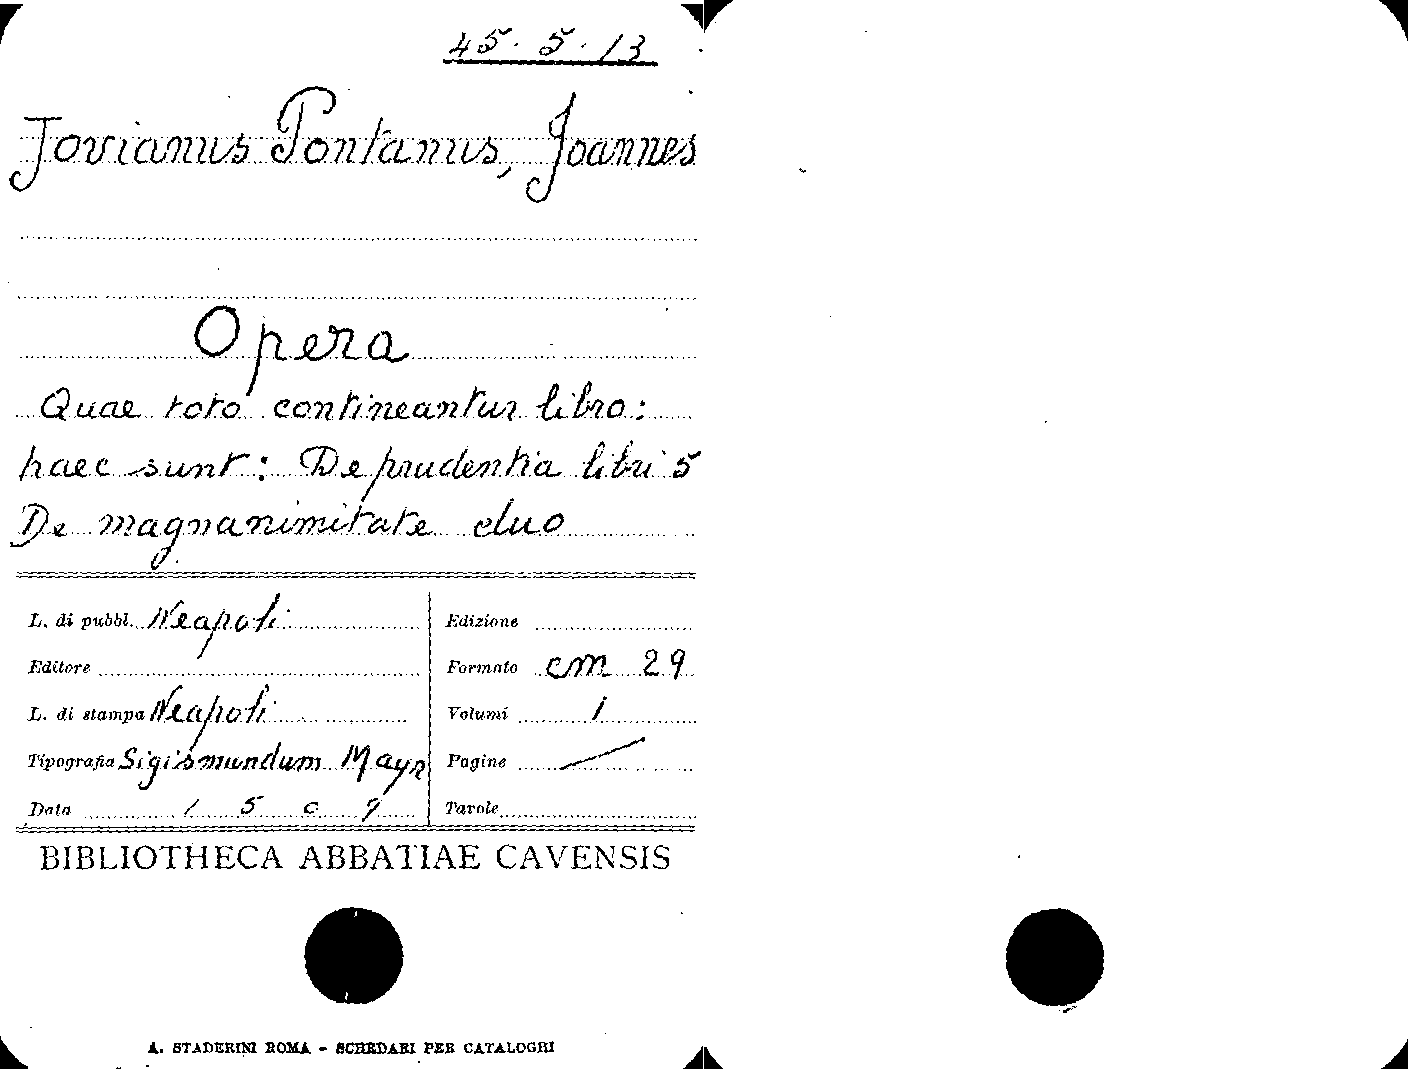 45. 5. 13
Jovianus Pontanus, Joannes
Opera
Quae toto contineantur libro:
haec sunt: De prudentia libri 5
De magnanimitate duo
L. di pubbl. Neapoli
Editore
L. di stampa Neapoli
Tipografia Sigismundum Mayr
Data 1509
Edizione
Formato cm 29
Volumi 1
Pagine
Tavole
BIBLIOTHECA ABBATIAE CAVENSIS
A. STADERINI ROMA - SCHEDARI PER CATALOGHI